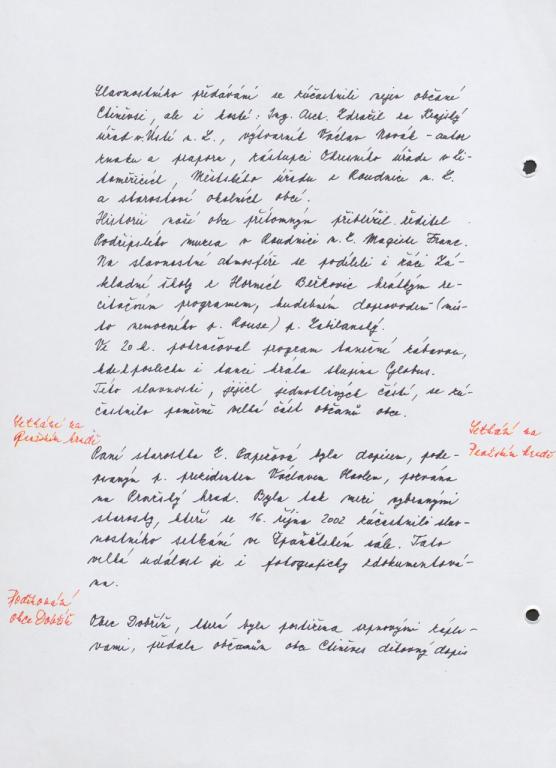 Slavnostního předávání se zúčastnili nejen občané
Ctiněvsi, ale i hosté: Ing. Arch. Zdražil za Krajský
úřad v Ústí n. L., výtvarník Václav Novák - autor
znaku a praporu, zástupci Okresního úřadu v Li-
toměřicích, Městského úřadu z Roudnice n. L.
a starostové okolních obcí.
Historii naší obce přítomným přiblížil ředitel
Podřipského muzea v Roudnici n. L. Magistr Franc.
Na slavnostní atmosféře se podíleli i žáci Zá-
kladní školy z Horních Beřkovic krátkým re-
citačním programem, hudebním doprovodem (mís-
to nemocného p. Rouse) p.
Ve 20 h. pokračoval program taneční zábavou,
kde k poslechu i tanci hrála skupina Globus.
Této slavnosti, jejích jednotlivých částí, se zú-
častnilo poměrně velká část občanů obce.
Setkání na
Pražském hradě
Setkání na
Pražském hradě
Paní starostka byla dopisem, pode-
psaným p. prezidentem Václavem Havlem, pozvána
na Pražský hrad. Byla tak mezi vybranými
starosty, kteří se 16. října 2002 zúčastnili slav-
nostního setkání ve Španělském sále. Tato
velká událost je i fotograficky zdokumentová-
na.
Poděkování
obce Dobříň
Obec Dobříň, která byla postižena srpnovými zápla-
vami, předala občanům obce Ctiněves děkovný dopis